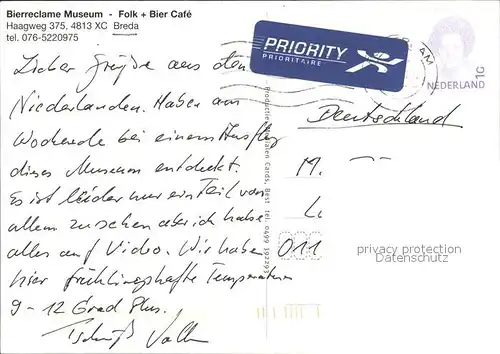 Bierreclame Museum - Folk + Bier Café
Haagweg 375, 4813 XC Breda
tel. 076-5220975
PRIORITY
PRIORITAIRE
AM
NEDERLAND
1G
Grüße aus den
Niederlanden. Haben am
Wochende bei einem Ausflug
dieses Museum entdeckt.
Es ist leider nur ein Teil von
allem zu sehen aber ich habe
alles auf Video. Wir haben
hier frühlingshafte Temperaturen
9-12 Grad Plus.
Tschüß
Deutschland
M.
L
011
privacy protection
Datenschutz
Cards, Best, tel. 0499